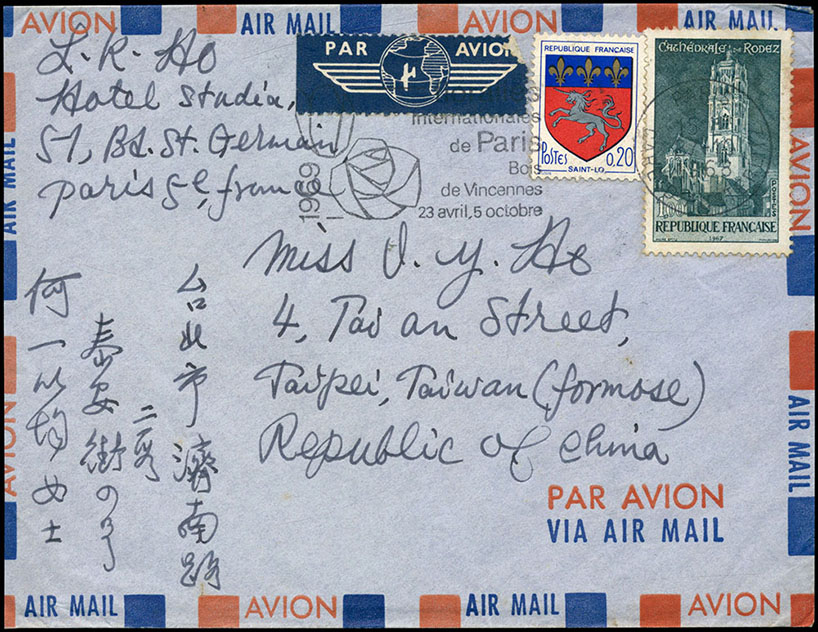 AVION
AIR MAIL
AVION
AIR MAIL
L. R. Ho
Hotel Studia,
51, Bd. St. Germain
Paris 5e, France
PAR AVION
1969
Internationales
de Paris
Bois
de Vincennes
23 avril, 5 octobre
REPUBLIQUE FRANÇAISE
POSTES 0.20
SAINT-LO
CATHÉDRALE DE RODEZ
POSTES
REPUBLIQUE FRANÇAISE
1967
Miss I. Y. Ho
4, Tai an Street,
Taipei, Taiwan (formose)
Republic of China
台北市濟南路
二段
泰安街四号
何一均女士
PAR AVION
VIA AIR MAIL
AIR MAIL
AVION
AIR MAIL
AVION
AIR MAIL
AVION
AVION
AIR MAIL